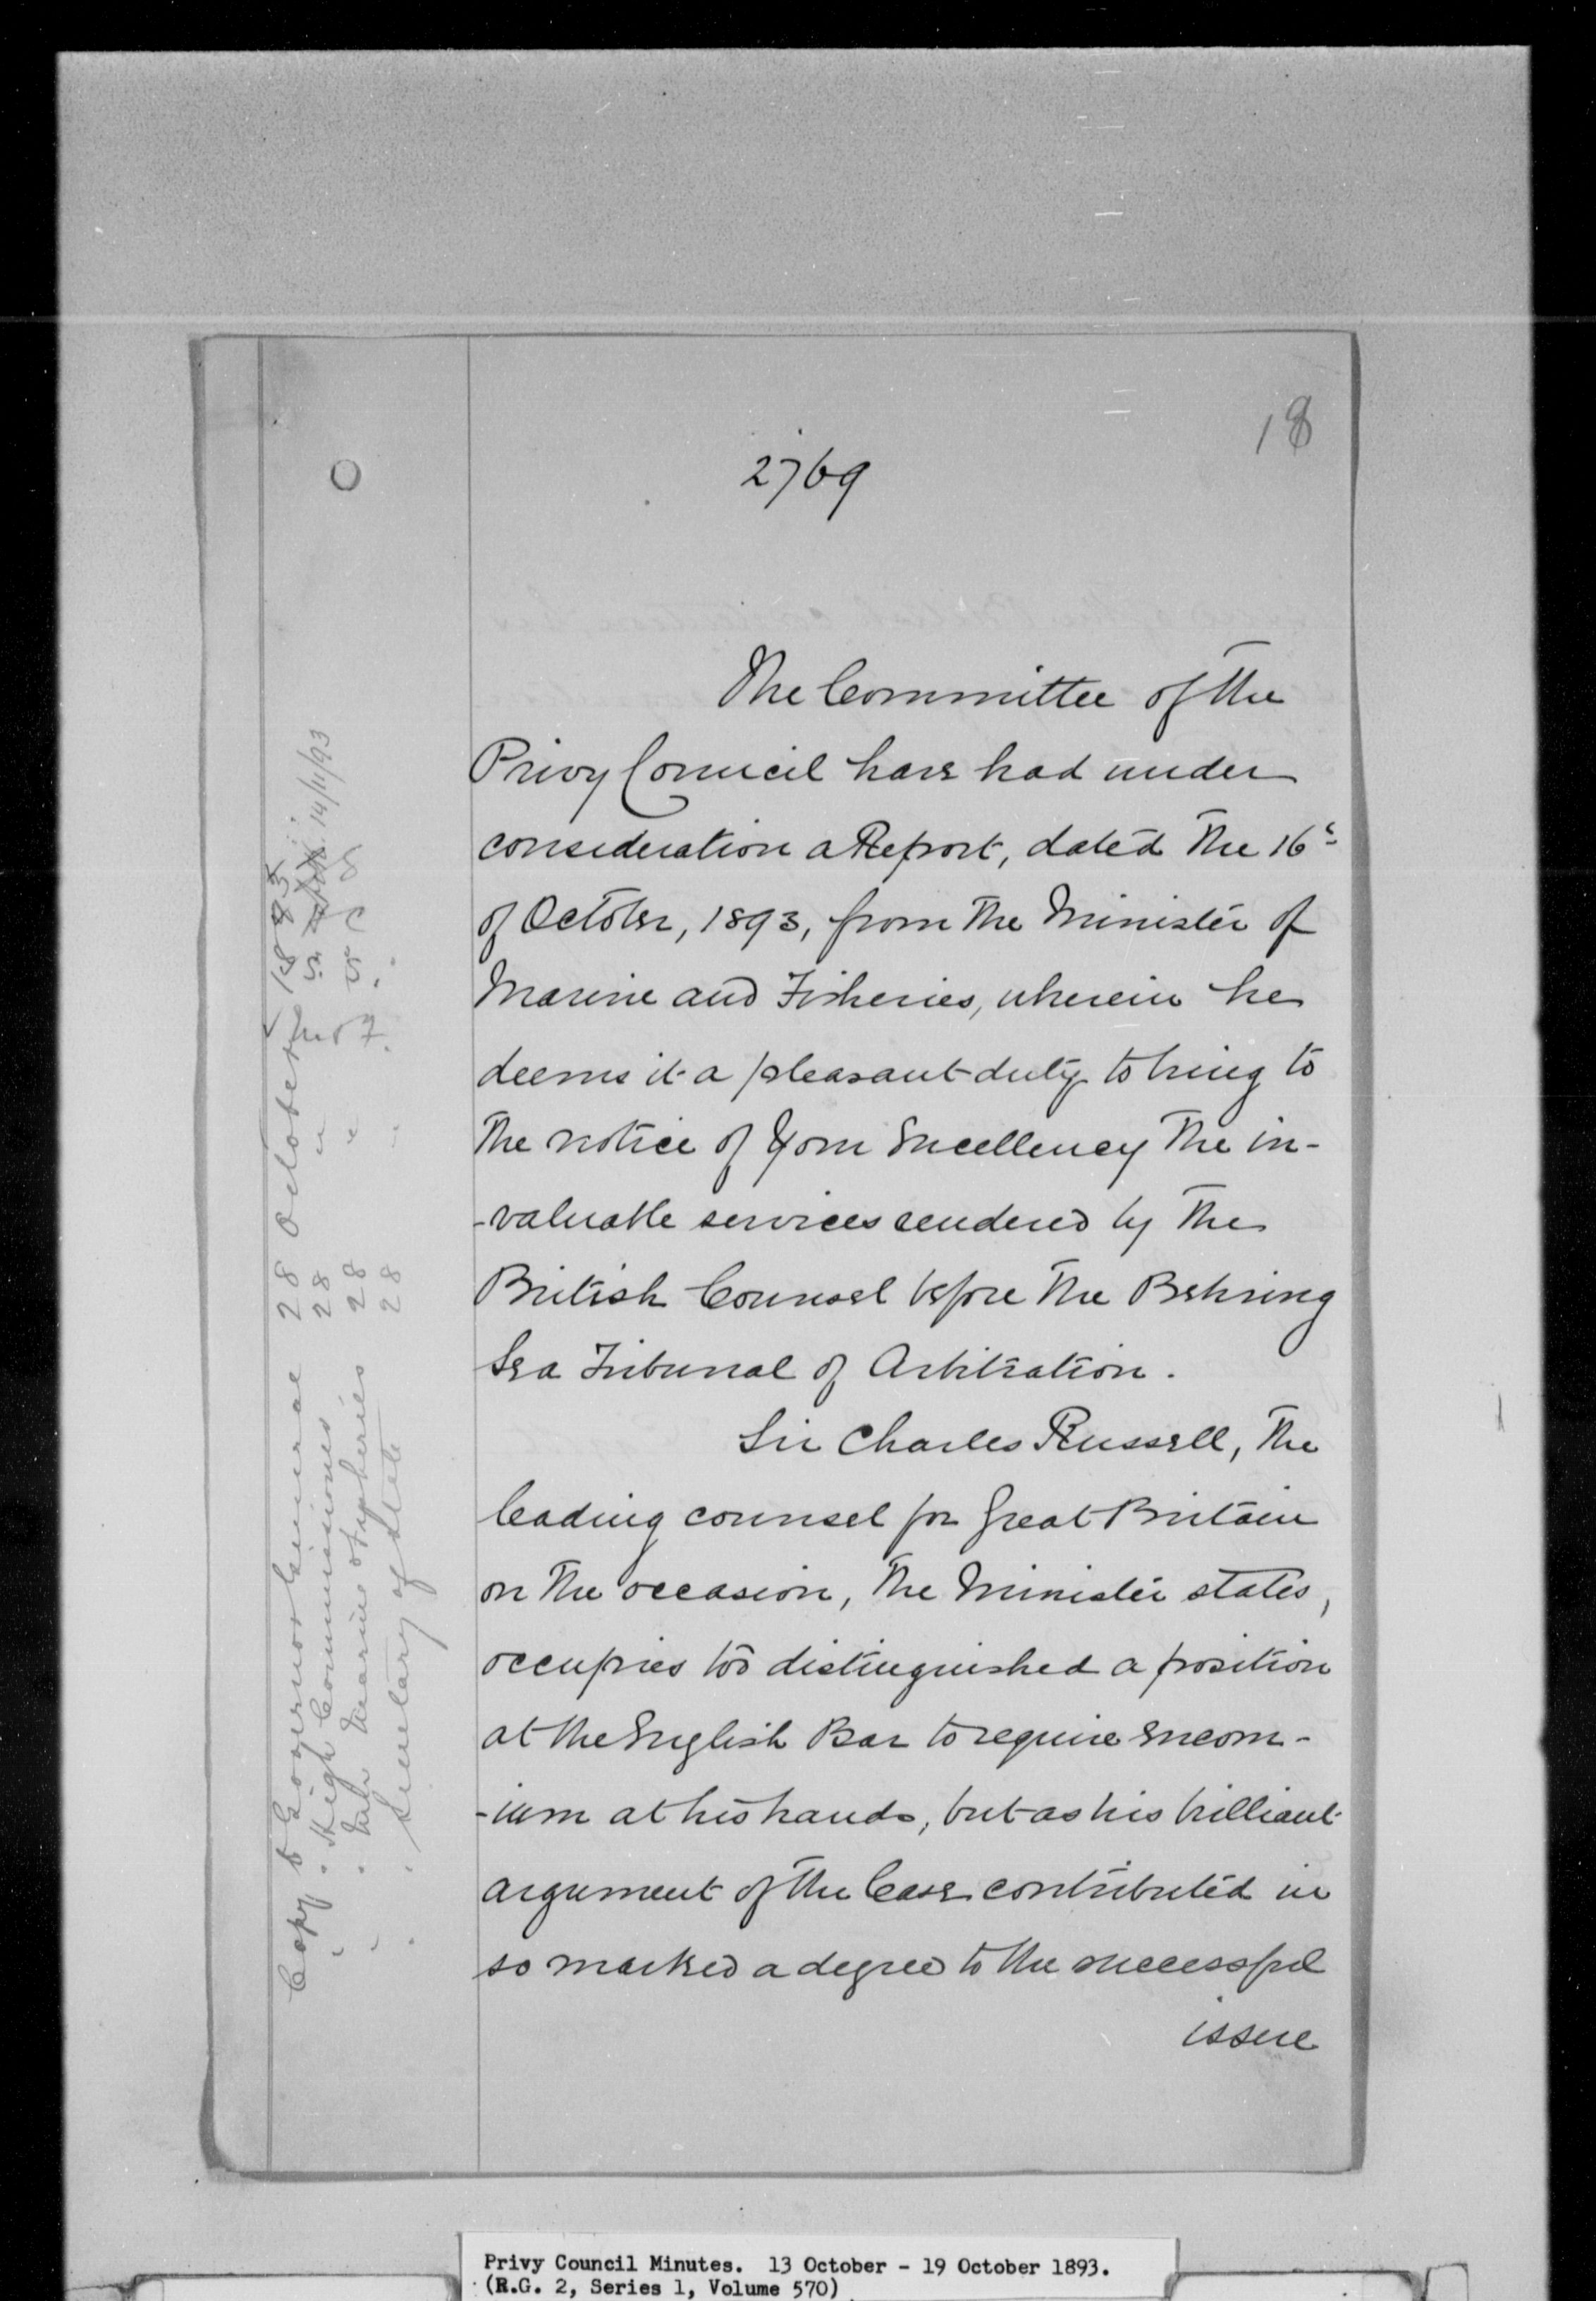 18
2769
The Committee of the
Privy Council have had under
consideration a Report, dated the 16th
of October, 1893, from the Minister of
Marine and Fisheries, wherein he
deems it a pleasant duty to bring to
the notice of Your Excellency the in-
-valuable services rendered by the
British Counsel before the Behring
Sea Tribunal of Arbitration.
Sir Charles Russell, the
leading counsel for Great Britain
on the occasion, the Minister states,
occupies too distinguished a position
at the English Bar to require encom-
-ium at his hands, but as his brilliant
argument of the Case contributed in
so marked a degree to the successful
issue
Copy to Governor General 28 October 1893
" " High Commissioner 28 " 14/11/93
" " Marine & Fisheries 28 "
" " Secretary of State 28 "
Privy Council Minutes. 13 October - 19 October 1893.
(R.G. 2, Series 1, Volume 570)